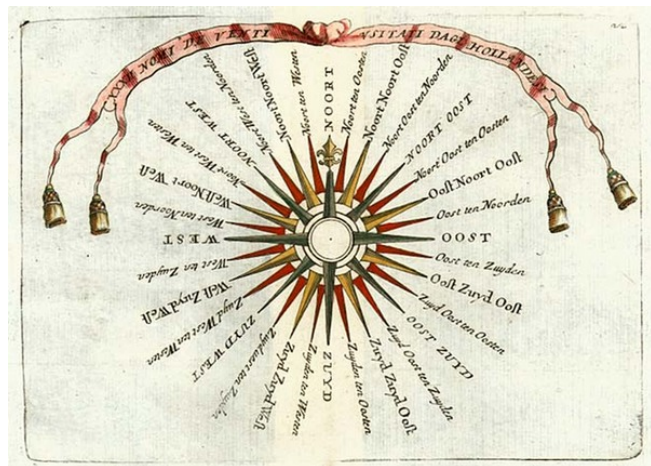 XXXII NOMI DE VENTI VSITATI DAGL HOLLANDESI
NOORT
Noort ten Oosten
Noort Noort Oost
Noort Oost ten Noorden
NOORT OOST
Noort Oost ten Oosten
Oost Noort Oost
Oost ten Noorden
OOST
Oost ten Zuyden
Oost Zuyd Oost
Zuyd Oost ten Oosten
OOST ZUYD
Zuyd Oost ten Zuyden
Zuyd Zuyd Oost
Zuyden ten Oosten
ZUYD
Zuyden ten Westen
Zuyd Zuyd West
Zuydwest ten Zuyden
ZUYD WEST
Zuyd West ten Westen
West Zuyd West
West ten Zuyden
WEST
West ten Noorden
West Noort West
Noort West ten Westen
NOORT WEST
Noort West ten Noorden
Noort Noort West
Noort ten Westen